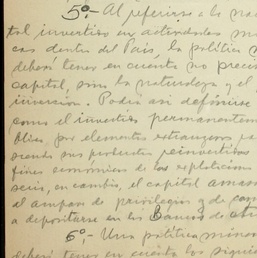 5º.- Al referirse a la nac
tal invertido en actividades mi
cas dentro del País, la política m
deberá tener en cuenta no preci
capital, sino la naturaleza y el
inversión. Podría así definirse
como el invertido permanentem
blico por elementos extranjeros
sus productos reinvertidos
fines económicos de las explotacion
en cambio, el capital amas
al amparo de privilegios y de con
a depositarse en los Bancos de
6º.- Una política minera
deberá tener en cuenta los siguie